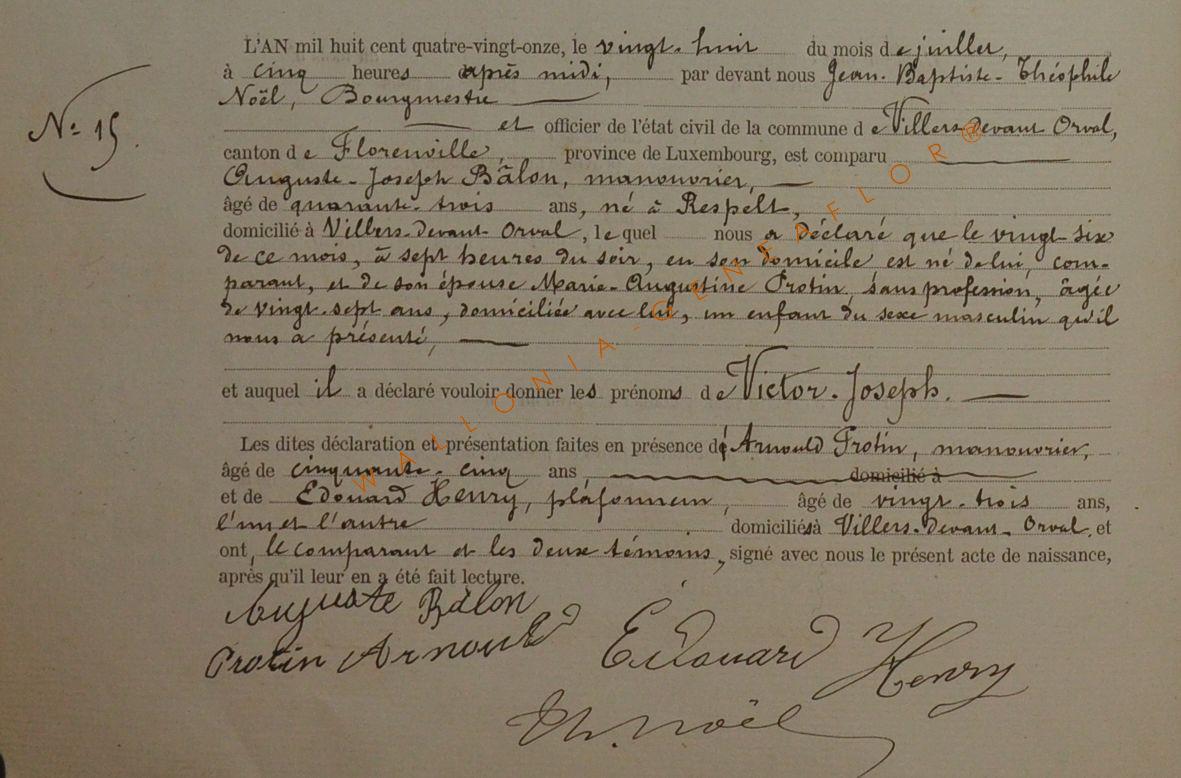 L'AN mil huit cent quatre-vingt-onze, le vingt-huit du mois de juillet,
à cinq heures après midi, par devant nous Jean-Baptiste-Théophile
Noël, Bourgmestre
et officier de l'état civil de la commune de Villers-devant Orval,
canton de Florenville, province de Luxembourg, est comparu
Auguste-Joseph Bâlon, manouvrier,
âgé de quarante-trois ans, né à Respelt,
domicilié à Villers-devant-Orval, lequel nous a déclaré que le vingt-six
de ce mois, à sept heures du soir, en son domicile, est né de lui, com-
parant, et de son épouse Marie-Augustine Protin, sans profession, âgée
de vingt-sept ans, domiciliée avec lui, un enfant du sexe masculin qu'il
nous a présenté,
et auquel il a déclaré vouloir donner les prénoms de Victor-Joseph.
Les dites déclaration et présentation faites en présence de Arnould Protin, manouvrier,
âgé de cinquante-cinq ans, domicilié à
et de Edouard Henry, plafonneur, âgé de vingt-trois ans,
l'un et l'autre domiciliés à Villers-devant-Orval, et
ont, le comparant et les deux témoins, signé avec nous le présent acte de naissance,
après qu'il leur en a été fait lecture.
Nº 15.
Auguste Bâlon
Protin Arnould
Edouard Henry
Th. Noël
WALLONIA-GENEAFLOR®